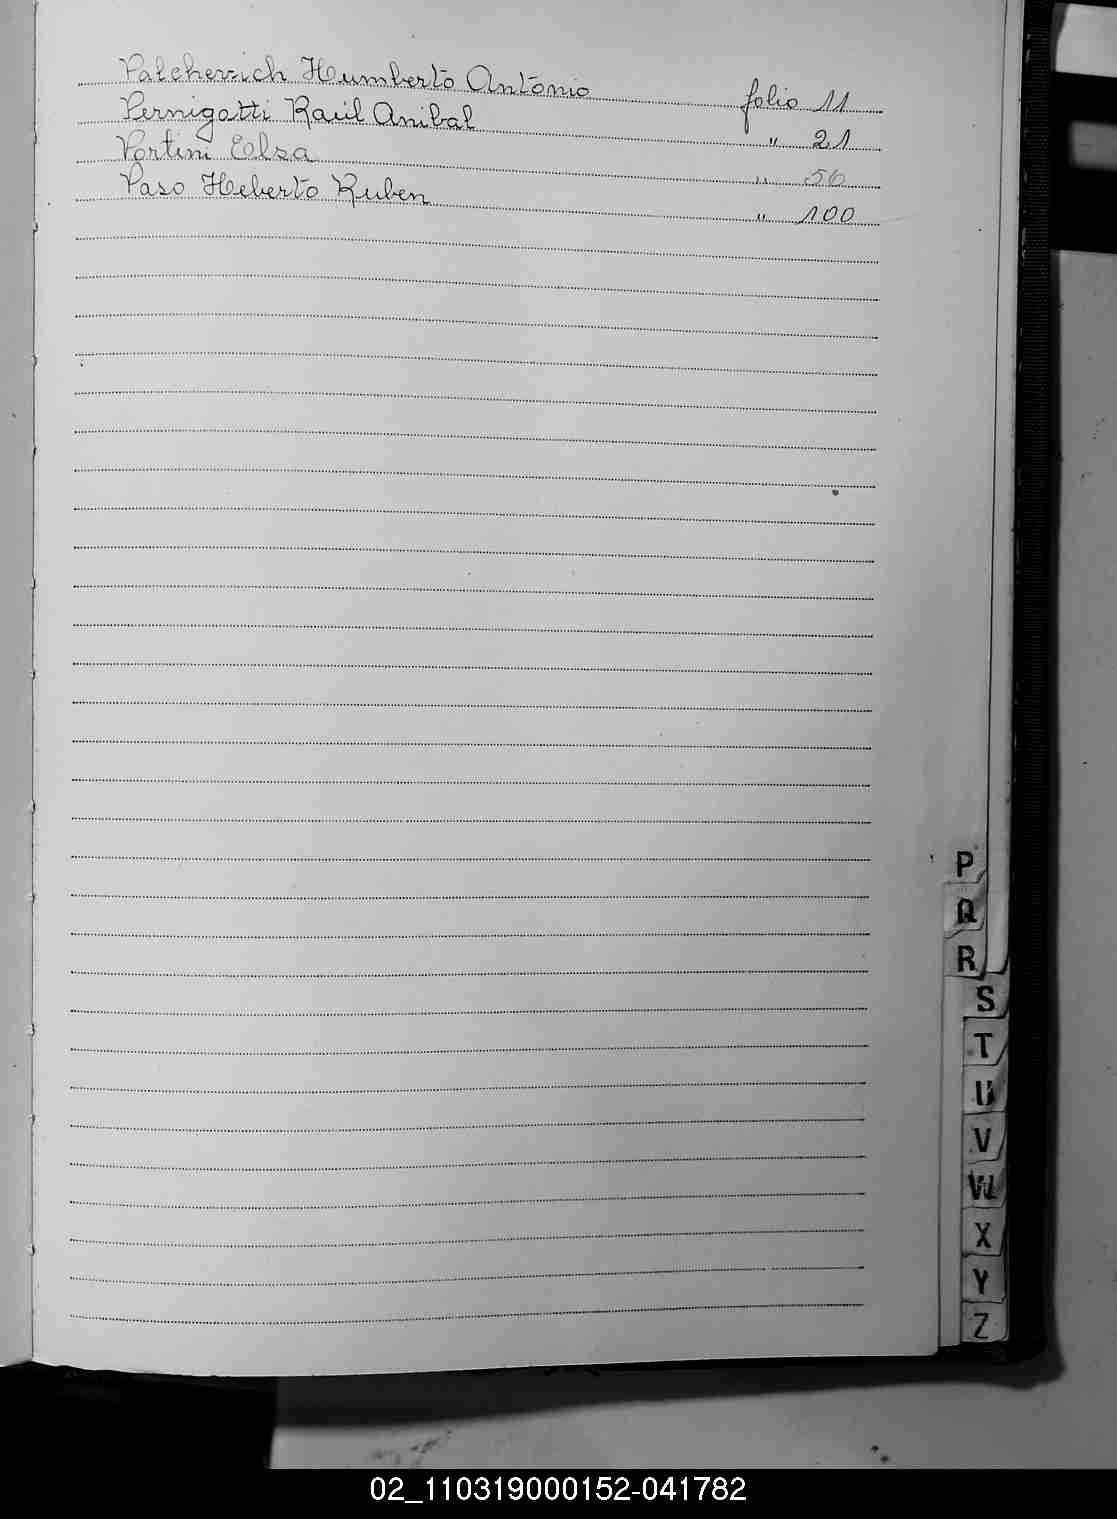 Palchevich Humberto Antonio folio 11
Pernigotti Raúl Anibal " 21
Portini Elsa " 56
Paso Heberto Ruben " 100
P
Q
R
S
T
U
V
W
X
Y
Z
02_110319000152-041782